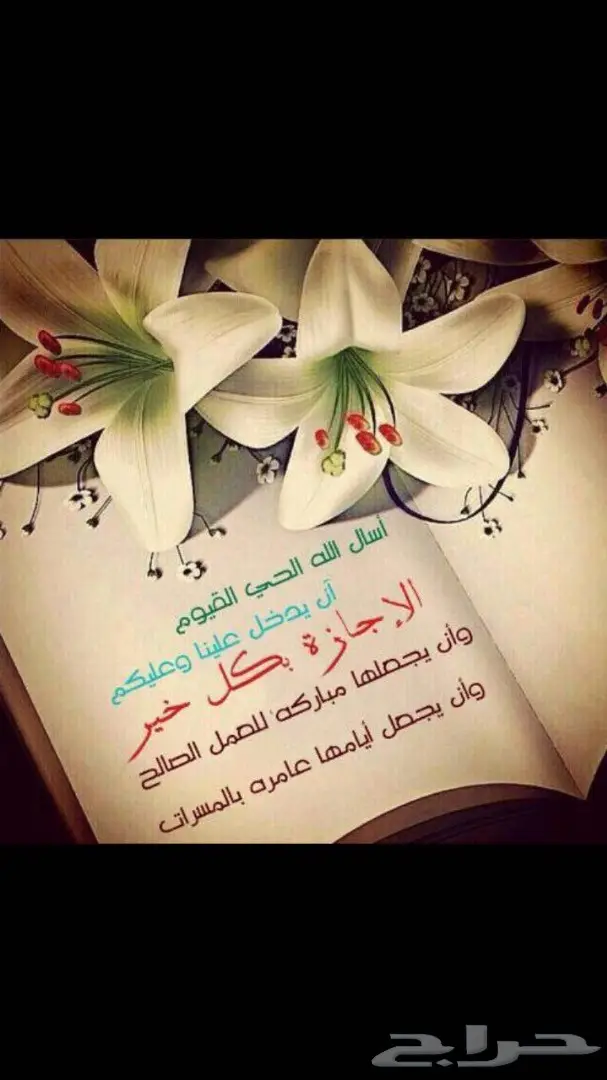 أسأل الله الحي القيوم
أن يدخل علينا وعليكم
الإجازة بكل خير
وأن يجعلها مباركه للعمل الصالح
وأن يجعل أيامها عامره بالمسرات
حراج